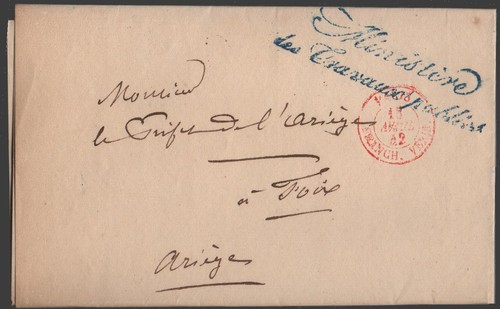 Ministère
des Travaux publics
13
AVRIL
42
FRANCH.
Monsieur
le Préfet de l'Ariège
à Foix
Ariège